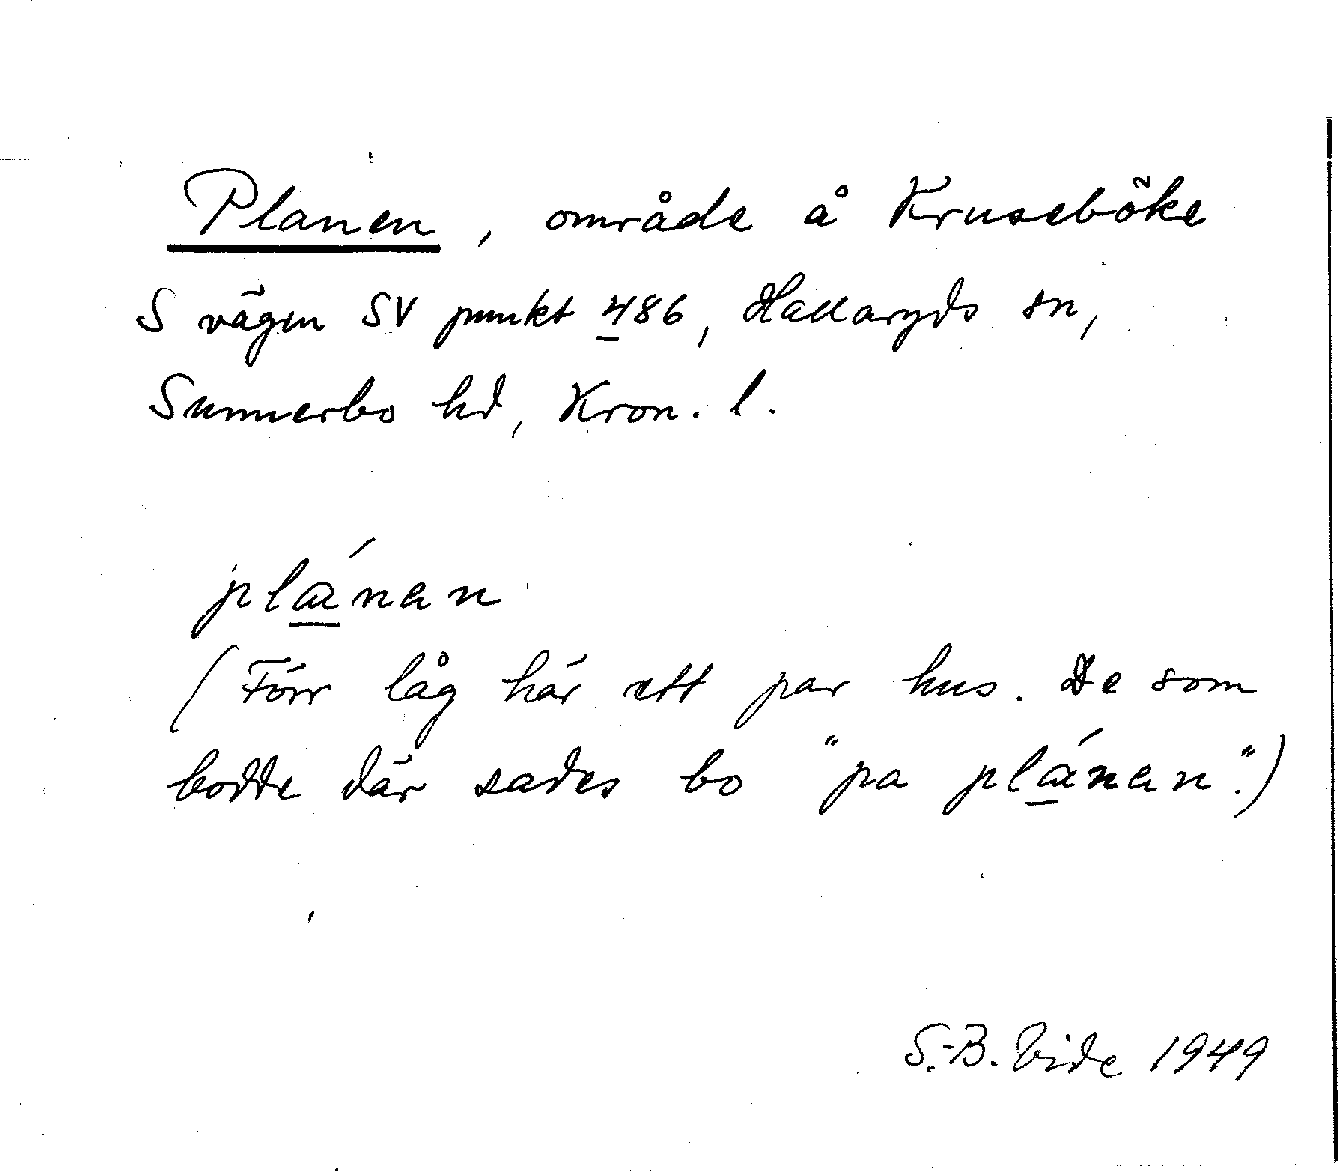 Planen, område å Kruseböke
S vägen SV punkt 486, Hallaryds sn,
Sunnerbo hd, Kron. l.
plánan
(Förr låg här ett par hus. De som
bodde där sades bo "pa plánan".)
S.-B. Vide 1949